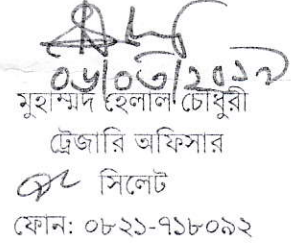 ০৬/০৩/২০১৭
মুহাম্মদ হেলাল চৌধুরী
ট্রেজারি অফিসার
সিলেট
ফোন: ০৮২১-৭১৮০৯২